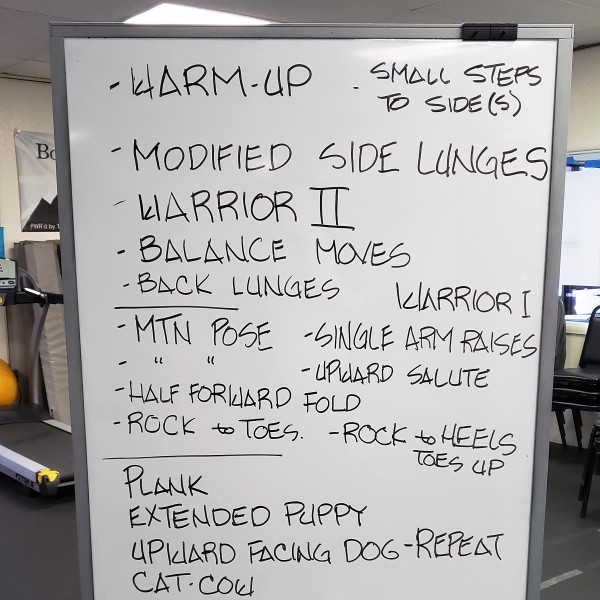 - WARM-UP - SMALL STEPS
TO SIDE(S)
- MODIFIED SIDE LUNGES
- WARRIOR II
- BALANCE MOVES
- BACK LUNGES WARRIOR I
- MTN POSE - SINGLE ARM RAISES
- " " - UPWARD SALUTE
- HALF FORWARD FOLD
- ROCK to TOES. - ROCK to HEELS
TOES UP
PLANK
EXTENDED PUPPY
UPWARD FACING DOG - REPEAT
CAT-COW